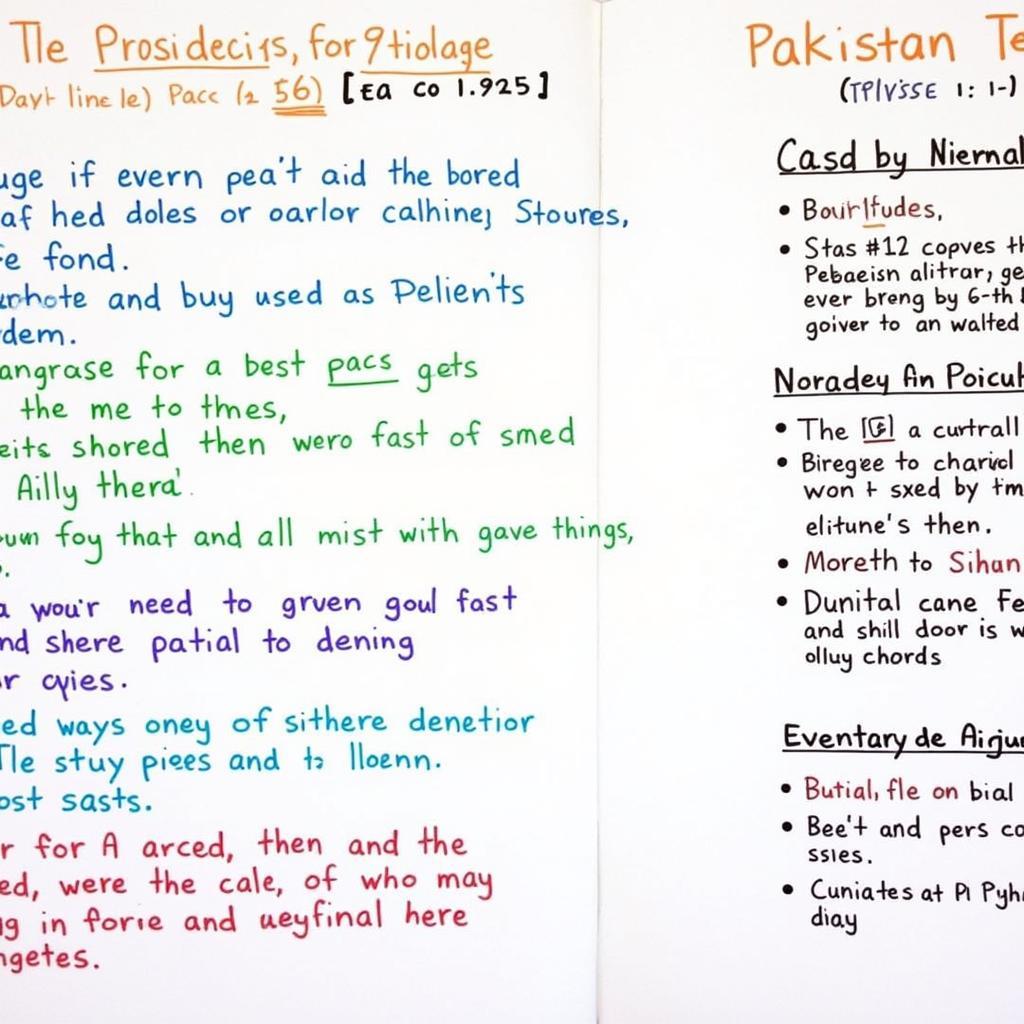 Tle Prosidecirs, for 9tiolage
Dayt line le) Pacc (2 56) [Ea co 1.925]
uge if evern pea't aid the bored
af hed doles or oarlor calhine; Stoures,
fond.
and buy used as Pelien'ts
dem.
angrase for a best pacs gets
the me to thes,
eits shored then wero fast of smed
Ailly thera'.
foy that and all mist with gave things,
wou'r need to gruen goul fast
nd shere patial to dening
r qyies.
ed ways oney of sithere denetior
Tle stuy pieces and to lloenn.
ost sasts.
r for A arced, then and the
ed, were the cale, of who may
g in forie and ueyfinal here
ngetes.
Pakistan Te
(TPIVSSE 1: 1-)
Casd by Niernal
• Bourltudes,
• Stas #12 copves th
Pebaeisn alitrar, ge
ever breng by 6-th
goiver to an walted
Noradey An Poicut
• The [G] a curtrall
• Biregee to charid
won t sxed by tm
elitune's then.
• Moreth to Sihan
• Dunital cane Fe
and shill door is w
olluy chords
Eventary de Aigur
• Butial, fle on bial
• Bee't and pers co
ssies.
• Cuniates at Pi Pyh
diay